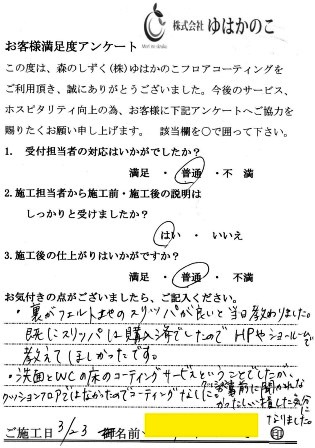 株式会社 ゆはかのこ
お客様満足度アンケート
この度は、森のしずく(株)ゆはかのこフロアコーティングを
ご利用頂き、誠にありがとうございました。今後のサービス、
ホスピタリティ向上の為、お客様に下記アンケートへご協力を
賜りたくお願い申し上げます。 該当欄を〇で囲って下さい。
1. 受付担当者の対応はいかがでしたか?
満足 ・ 普通 ・ 不 満
2.施工担当者から施工前・施工後の説明は
しっかりと受けましたか?
はい ・ いいえ
3.施工後の仕上がりはいかがですか?
満足 ・ 普通 ・ 不 満
お気付きの点がございましたら、ご記入ください。
・裏がフェルト地のスリッパが良いと当日教わりました。
既にスリッパは購入済でしたので HPやショールームで
教えてほしかったです。
・洗面とWCの床のコーティングサービスということでしたが、
クッションフロアではなかったのでコーティングなしに。
事前に聞かれな
かったしい 損した気分に
なりました。
ご施工日 3/23 御名前 印